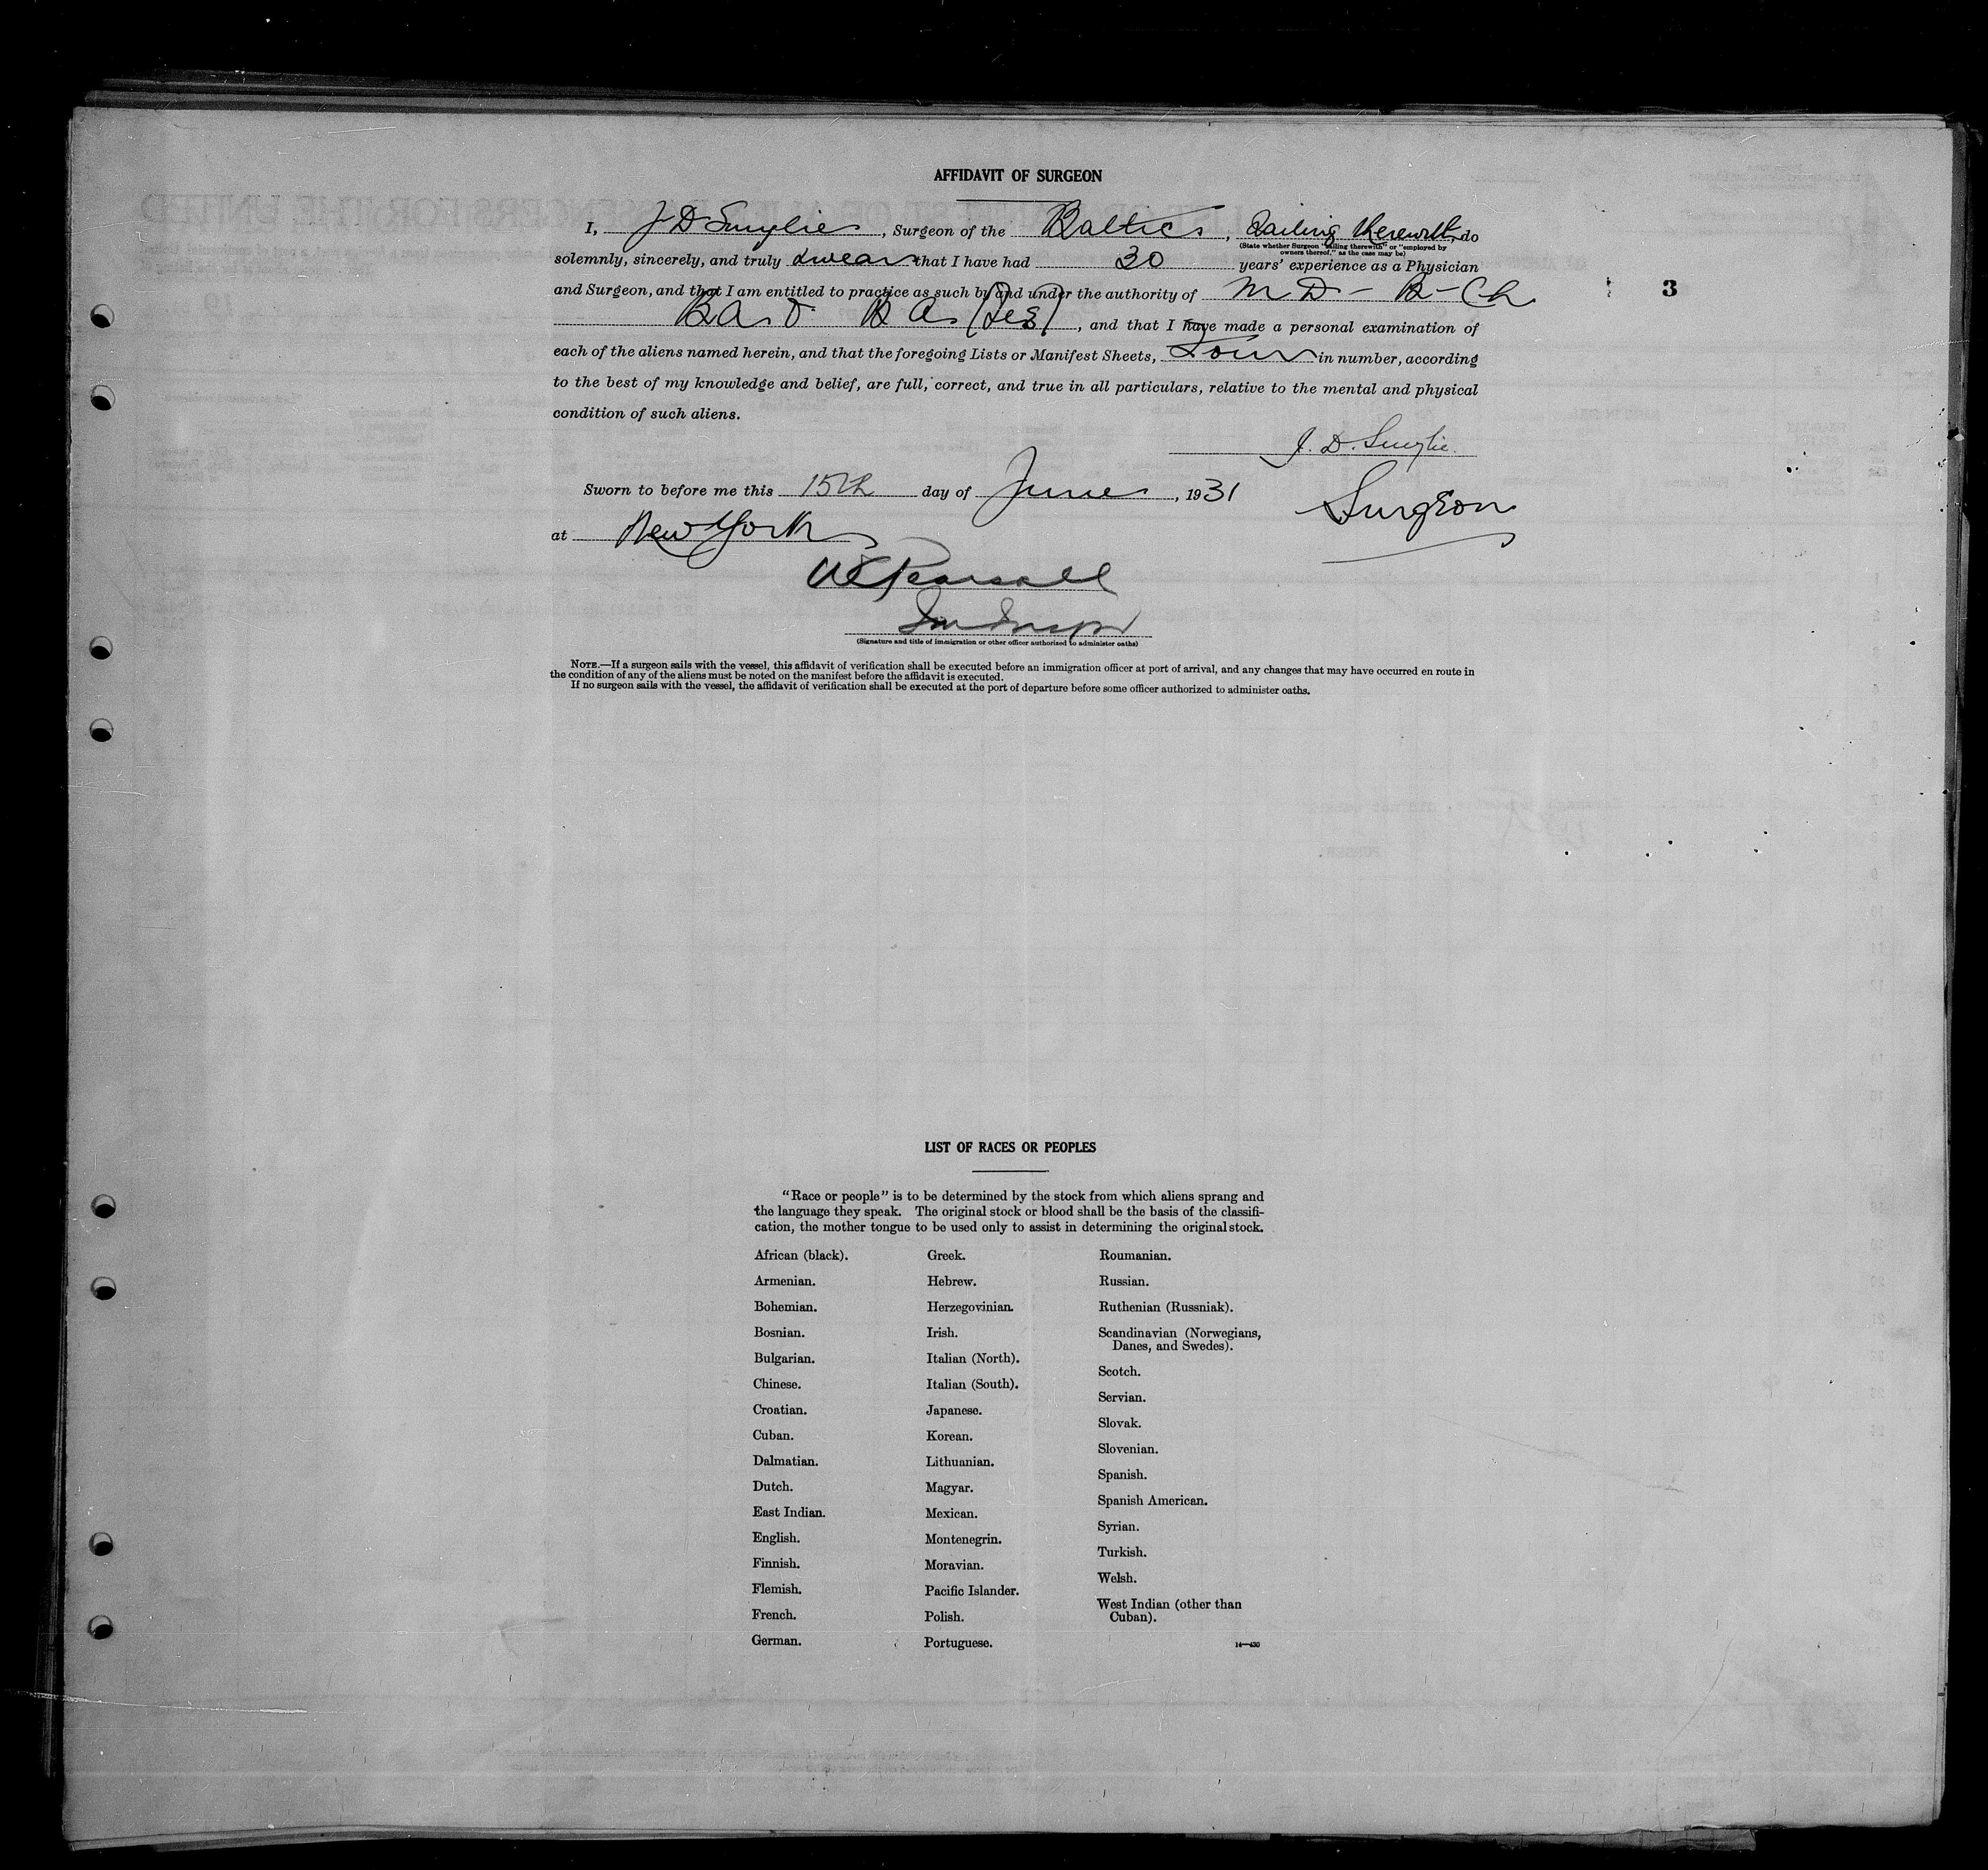 AFFIDAVIT OF SURGEON
I, J D Smylie, Surgeon of the Baltic, Sailing therewith, do
(State whether Surgeon "sailing therewith" or "employed by
owners thereof," as the case may be)
solemnly, sincerely, and truly swear that I have had 30 years' experience as a Physician
and Surgeon, and that I am entitled to practice as such by and under the authority of M D - B - Ch
B A O B A, and that I have made a personal examination of
each of the aliens named herein, and that the foregoing Lists or Manifest Sheets, Four in number, according
to the best of my knowledge and belief, are full, correct, and true in all particulars, relative to the mental and physical
condition of such aliens.
J. D. Smylie.
Surgeon
Sworn to before me this 15th day of June, 1931
at New York
3
Pearsall
Imm Inspr
(Signature and title of immigration or other officer authorized to administer oaths)
NOTE.—If a surgeon sails with the vessel, this affidavit of verification shall be executed before an immigration officer at port of arrival, and any changes that may have occurred en route in
the condition of any of the aliens must be noted on the manifest before the affidavit is executed.
If no surgeon sails with the vessel, the affidavit of verification shall be executed at the port of departure before some officer authorized to administer oaths.
LIST OF RACES OR PEOPLES
"Race or people" is to be determined by the stock from which aliens sprang and
the language they speak. The original stock or blood shall be the basis of the classifi-
cation, the mother tongue to be used only to assist in determining the original stock.
African (black).
Armenian.
Bohemian.
Bosnian.
Bulgarian.
Chinese.
Croatian.
Cuban.
Dalmatian.
Dutch.
East Indian.
English.
Finnish.
Flemish.
French.
German.
Greek.
Hebrew.
Herzegovinian.
Irish.
Italian (North).
Italian (South).
Japanese.
Korean.
Lithuanian.
Magyar.
Mexican.
Montenegrin.
Moravian.
Pacific Islander.
Polish.
Portuguese.
Roumanian.
Russian.
Ruthenian (Russniak).
Scandinavian (Norwegians,
Danes, and Swedes).
Scotch.
Servian.
Slovak.
Slovenian.
Spanish.
Spanish American.
Syrian.
Turkish.
Welsh.
West Indian (other than
Cuban).
14—430